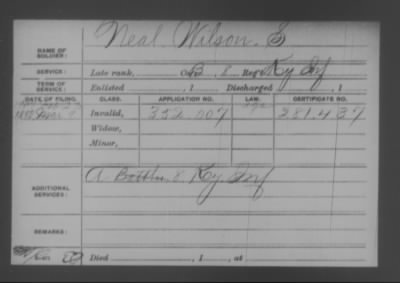 Neal Wilson S
NAME OF SOLDIER:
SERVICE: Late rank, Co. B, 8 Reg't Ky Inf
TERM OF SERVICE: Enlisted , 1 Discharged , 1
DATE OF FILING. CLASS. APPLICATION NO. LAW. CERTIFICATE NO.
Invalid, 352.007 281.437
Widow,
Minor,
ADDITIONAL SERVICES: A 8 Ky Inf
REMARKS:
Died , 1 , at